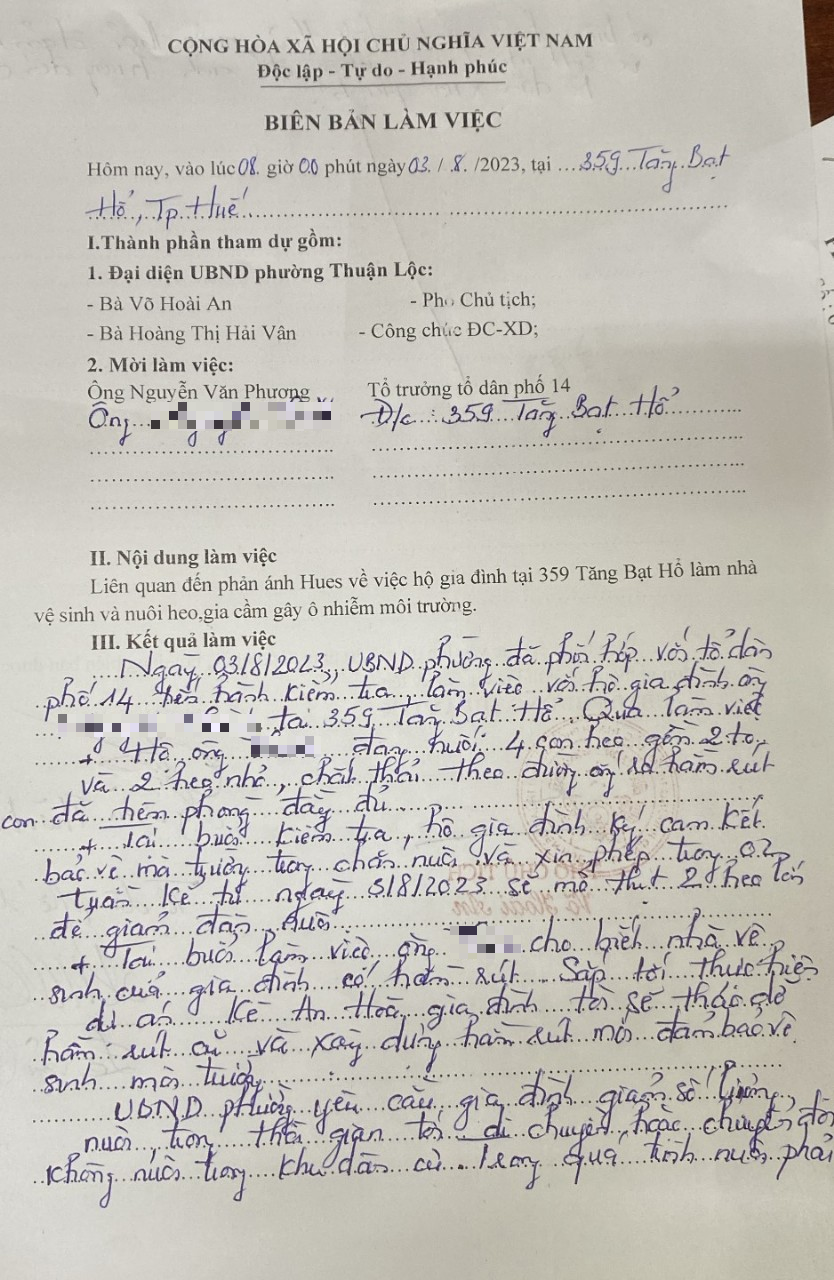 CỘNG HÒA XÃ HỘI CHỦ NGHĨA VIỆT NAM
Độc lập - Tự do - Hạnh phúc
BIÊN BẢN LÀM VIỆC
Hôm nay, vào lúc 08. giờ 00 phút ngày 03. / .8. /2023, tại ...359...Tăng.Bạt
Hổ, Tp. Huế
I.Thành phần tham dự gồm:
1. Đại diện UBND phường Thuận Lộc:
- Bà Võ Hoài An - Phó Chủ tịch;
- Bà Hoàng Thị Hải Vân - Công chức ĐC-XD;
2. Mời làm việc:
Ông Nguyễn Văn Phương Tổ trưởng tổ dân phố 14
Ông Đ/c : 359 Tăng Bạt Hổ
II. Nội dung làm việc
Liên quan đến phản ánh Hues về việc hộ gia đình tại 359 Tăng Bạt Hổ làm nhà
vệ sinh và nuôi heo,gia cầm gây ô nhiễm môi trường.
III. Kết quả làm việc
Ngày 03/8/2023, UBND phường đã phối hợp với tổ dân
phố 14 tiến hành kiểm tra, làm việc với hộ gia đình ông
tại 359 Tăng Bạt Hổ. Qua làm việc
+ Hộ ông đang nuôi 4 con heo gồm 2 to,
và 2 heo nhỏ, chất thải theo đường ống ra hầm rút
con đã tiêm phòng đầy đủ.
+ Tại buổi kiểm tra, hộ gia đình ký cam kết
bảo vệ môi trường trong chăn nuôi và xin phép trong 02
tuần kể từ ngày 3/8/2023 sẽ mổ thịt 2 heo lớn
để giảm đàn nuôi.
+ Tại buổi làm việc, ông cho biết nhà vệ
sinh của gia đình có hầm rút. Sắp tới thực hiện
dự án Kè An Hoà, gia đình tôi sẽ tháo dỡ
hầm rút cũ và xây dựng hầm rút mới đảm bảo vệ
sinh môi trường.
UBND phường yêu cầu gia đình giảm số lượng
nuôi, trong thời gian tới di chuyển hoặc chuyển đổi
không nuôi trong khu dân cư. Trong quá trình nuôi phải